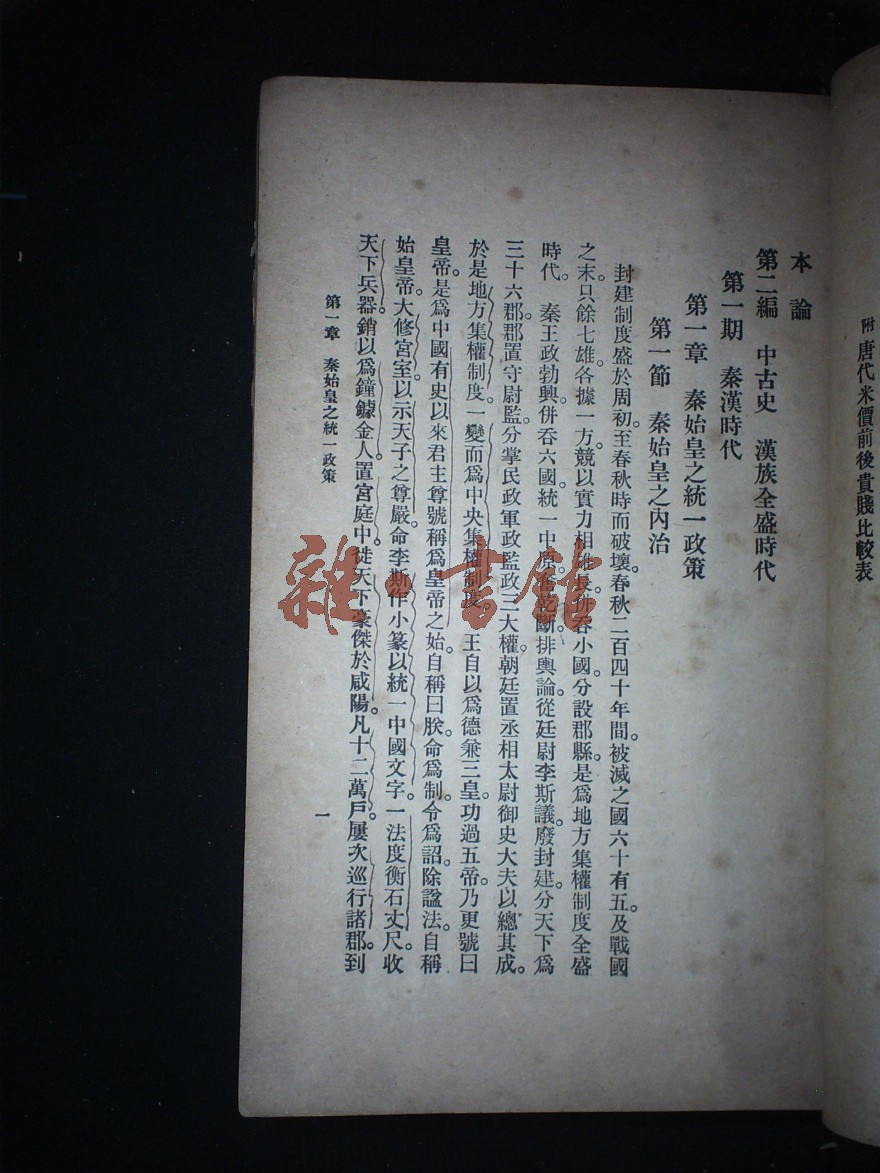 附 唐代米價前後貴賤比較表
本論
第二編 中古史 漢族全盛時代
第一期 秦漢時代
第一章 秦始皇之統一政策
第一節 秦始皇之內治
封建制度盛於周初。至春秋時而破壞。春秋二百四十年間。被滅之國六十有五。及戰國
之末。只餘七雄。各據一方。競以實力相雄長。併吞小國。分設郡縣。是爲地方集權制度全盛
時代。 秦王政勃興。併吞六國。統一中原。奮乾斷。排輿論。從廷尉李斯議。廢封建。分天下爲
三十六郡。郡置守尉監。分掌民政軍政監政三大權。朝廷置丞相太尉御史大夫以總其成。
於是地方集權制度。一變而爲中央集權制度。 王自以爲德兼三皇。功過五帝。乃更號曰
皇帝。是爲中國有史以來君主尊號稱爲皇帝之始。自稱曰朕。命爲制。令爲詔。除諡法。自稱
始皇帝。大修宮室。以示天子之尊嚴。命李斯作小篆以統一中國文字。一法度衡石丈尺。收
天下兵器。銷以爲鐘鐻金人。置宮庭中。徙天下豪傑於咸陽。凡十二萬戶。屢次巡行諸郡。到
第一章 秦始皇之統一政策
一
雜·書館